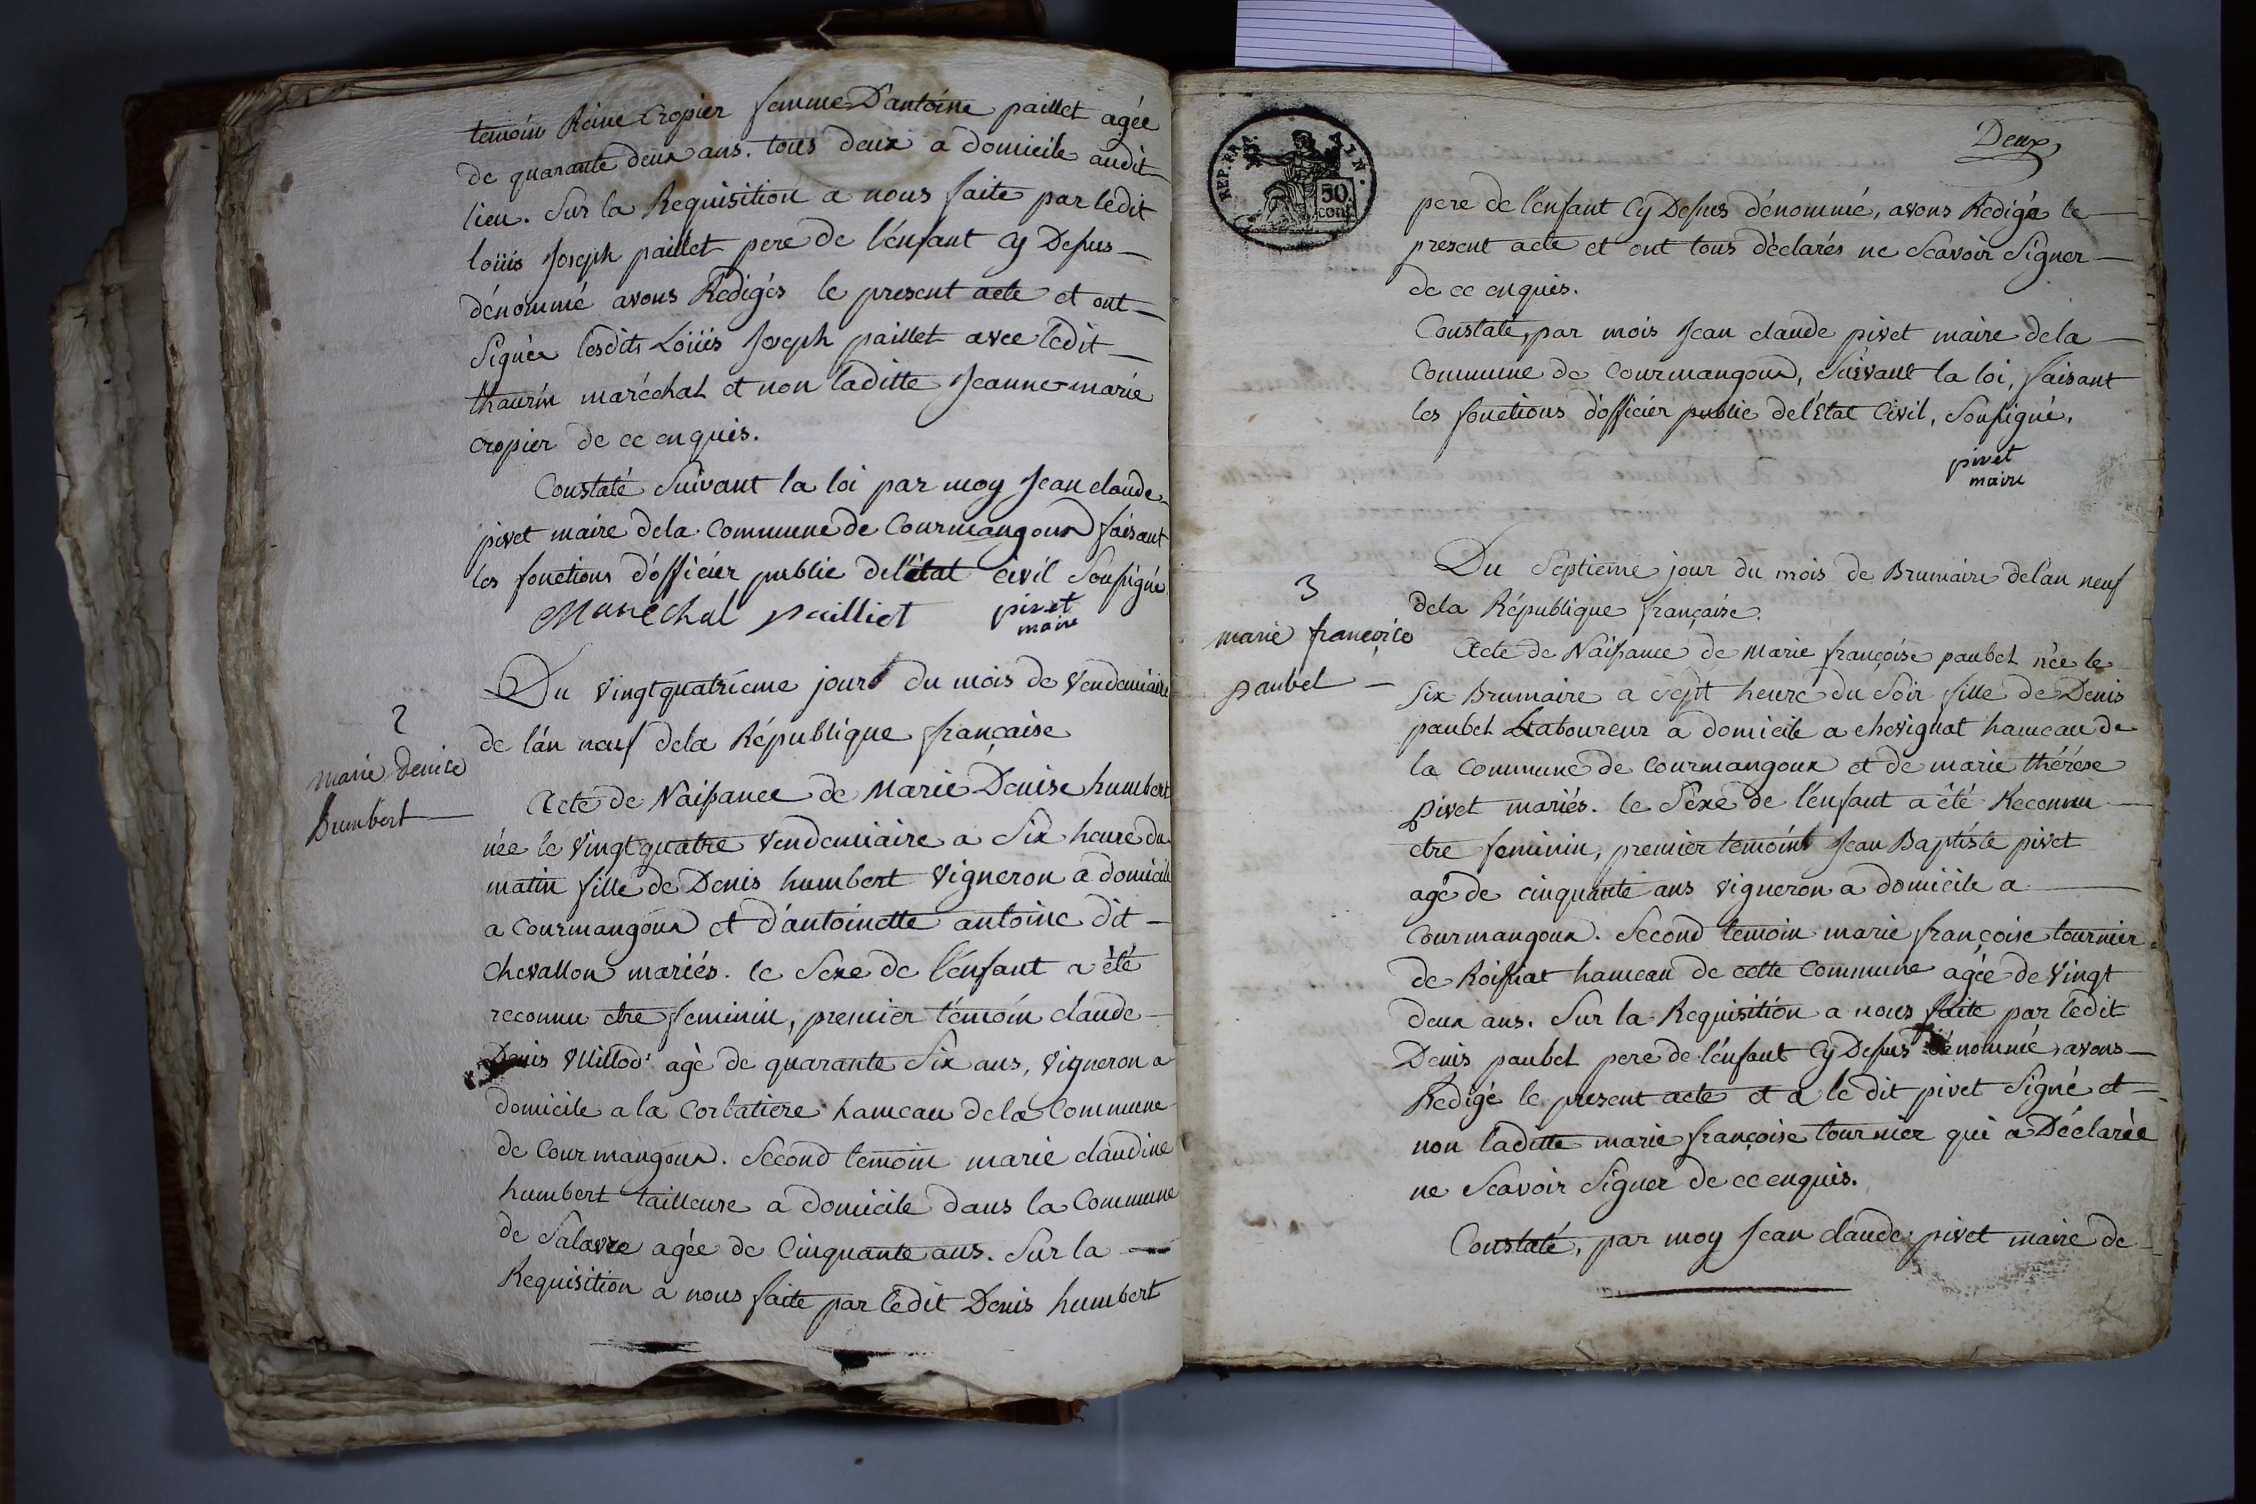 temoin Reine Cropier femme D'antoine paillet agée
de quarante deux ans. tous deux a domicile audit
lieu. Sur la Requisition a nous faite par ledit
loüis Joseph paillet pere de l'énfant Cy Dessus
dénommé avons Rédigés le present acte et ont
Signés lesdits Loüis Joseph paillet avec ledit
thaurin maréchal et non laditte Jeanne marie
cropier de ce enquis.
Constaté Suivant la loi par moy Jean claude
pivet maire dela Commune de Courmangoux faisant
les fonctions d'officier public del'état civil Soussigné
Marechal pailliet pivet
maire
2
marie denice
humbert
Du vingtquatriéme jour du mois de Vendemiaire
de l'an neuf dela République française
Acte de Naissance de Marie Denise humbert
née le vingtquatre vendemiaire a Six heure du
matin fille de Denis humbert Vigneron a domicile
a Courmangoux et d'antoinette antoine dit
chevallon mariés. le Sexe de l'énfant a été
reconnu etre feminin, premier témoin claude
Denis Vuillod agé de quarante Six ans, Vigneron a
domicile a la Corbatiere hameau dela Commune
de Courmangoux. Second temoin marie claudine
humbert tailleuse a domicile dans la Commune
de Salavre agée de Cinquante ans. Sur la
Requisition a nous faite par ledit Denis humbert
REP. FRA. AIN.
50
cent
Deux
pere de l'enfant Cy Dessus dénommé, avons Rédigé le
present acte et ont tous déclarés ne Scavoir Signer
de ce enquis.
Constaté, par mois Jean claude pivet maire dela
Commune de Courmangoux, Suivant la loi, faisant
les fonctions d'officier public del'Etat Civil, Soussigné.
pivet
maire
3
marie françoice
paubel
Du Septieme jour du mois de Brumaire del'an neuf
dela République française.
Acte de Naissance de Marie françoise paubel née le
Six Brumaire a Sept heure du Soir fille de Denis
paubel Laboureur a domicile a chevignat hameau de
la Commune de Courmangoux et de marie thérése
pivet mariés. le Séxe de l'énfant a été Reconnu
etre feminin, premier temoint Jean Baptiste pivet
agé de cinquante ans vigneron a domicile a
Courmangoux. Second temoin marie françoise tournier
de Roissiat hameau de cette Commune agée de Vingt
deux ans. Sur la Requisition a nous faite par ledit
Denis paubel pere de l'énfant Cy Dessus dénommé avons
Redigé le present acte et a le dit pivet Signé et
non laditte marie françoise tournier qui a Déclarée
ne Scavoir Signer de ce enquis.
Constaté, par moy Jean claude pivet maire de